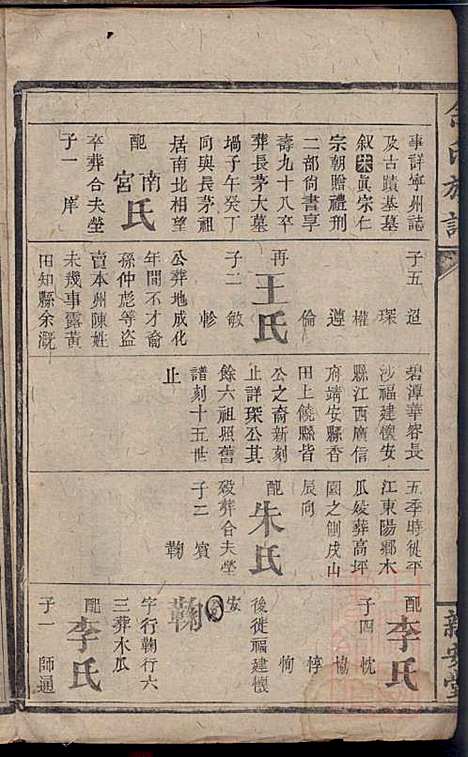 事詳寧州誌
及古蹟基墓
叙宋真宗仁
宗朝贈禮刑
二部尙書享
壽九十八卒
葬長茅大墓
塥子午癸丁
向與長茅祖
居南北相望
配 南宮氏
卒葬合夫塋
子一 庠
子五 迢
琛
權
遵
倫
再 王氏
子二 敏
軫
公葬地成化
年間不才裔
孫仲彪等盜
賣本州陳姓
未幾事露黃
田知縣余溉
碧潭華容長
沙福建懷安
縣江西廣信
府靖安縣香
田上饒縣皆
公之裔新刻
止詳琛公其
餘六祖照舊
譜刻十五世
止
五季時從平
江東陽鄉木
瓜妓葬高坪
園之側戌山
辰向
配 朱氏
歿葬合夫塋
子二 賓
鞠
配 李氏
子四 忱
協
悙
恂
後徙福建懷
安
鞠
字行鞠行六
三葬木瓜
配 李氏
子一 師通
余氏族譜
新安堂